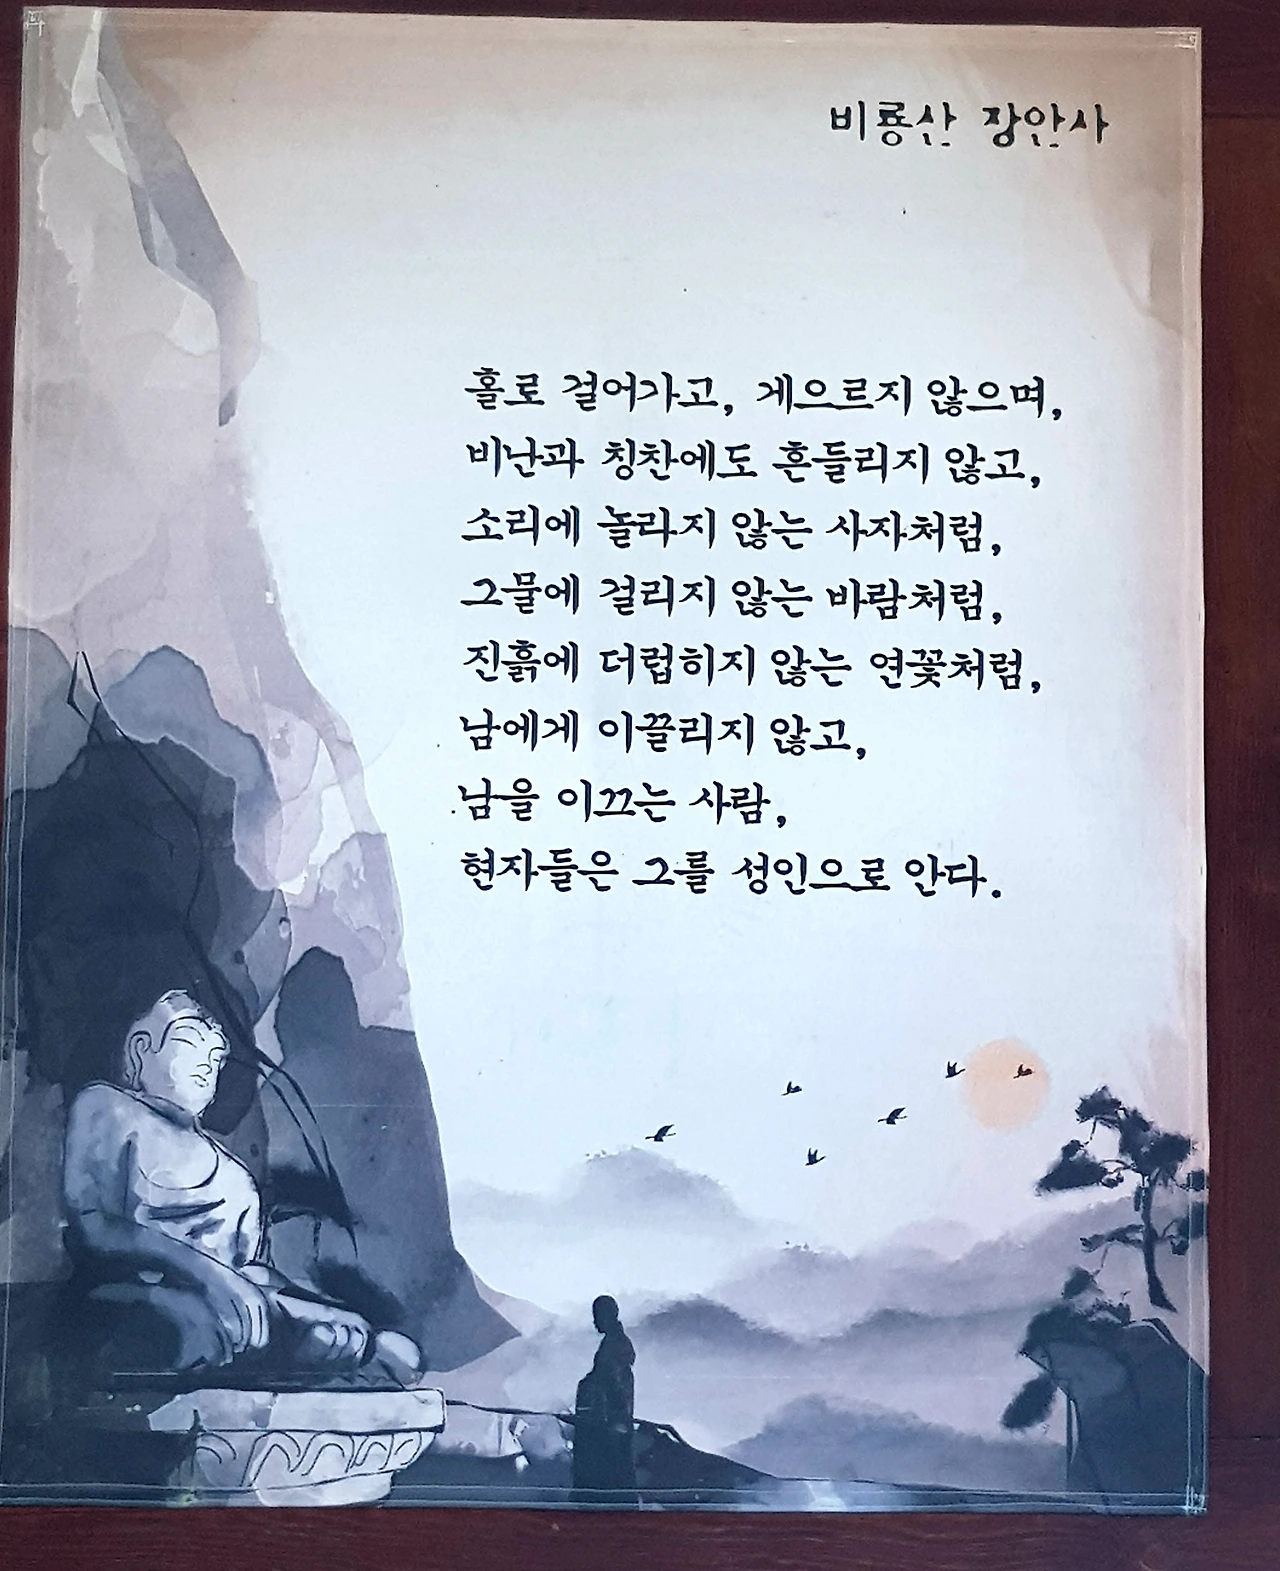 비룡산 장안사
홀로 걸어가고, 게으르지 않으며,
비난과 칭찬에도 흔들리지 않고,
소리에 놀라지 않는 사자처럼,
그물에 걸리지 않는 바람처럼,
진흙에 더럽히지 않는 연꽃처럼,
남에게 이끌리지 않고,
남을 이끄는 사람,
현자들은 그를 성인으로 안다.